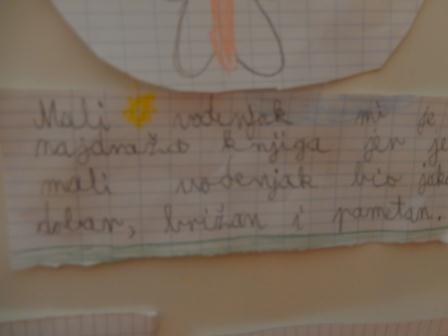 Mali vodenjak mi je
najdraža knjiga jer je
mali vodenjak bio jako
dobar, brižan i pametan.